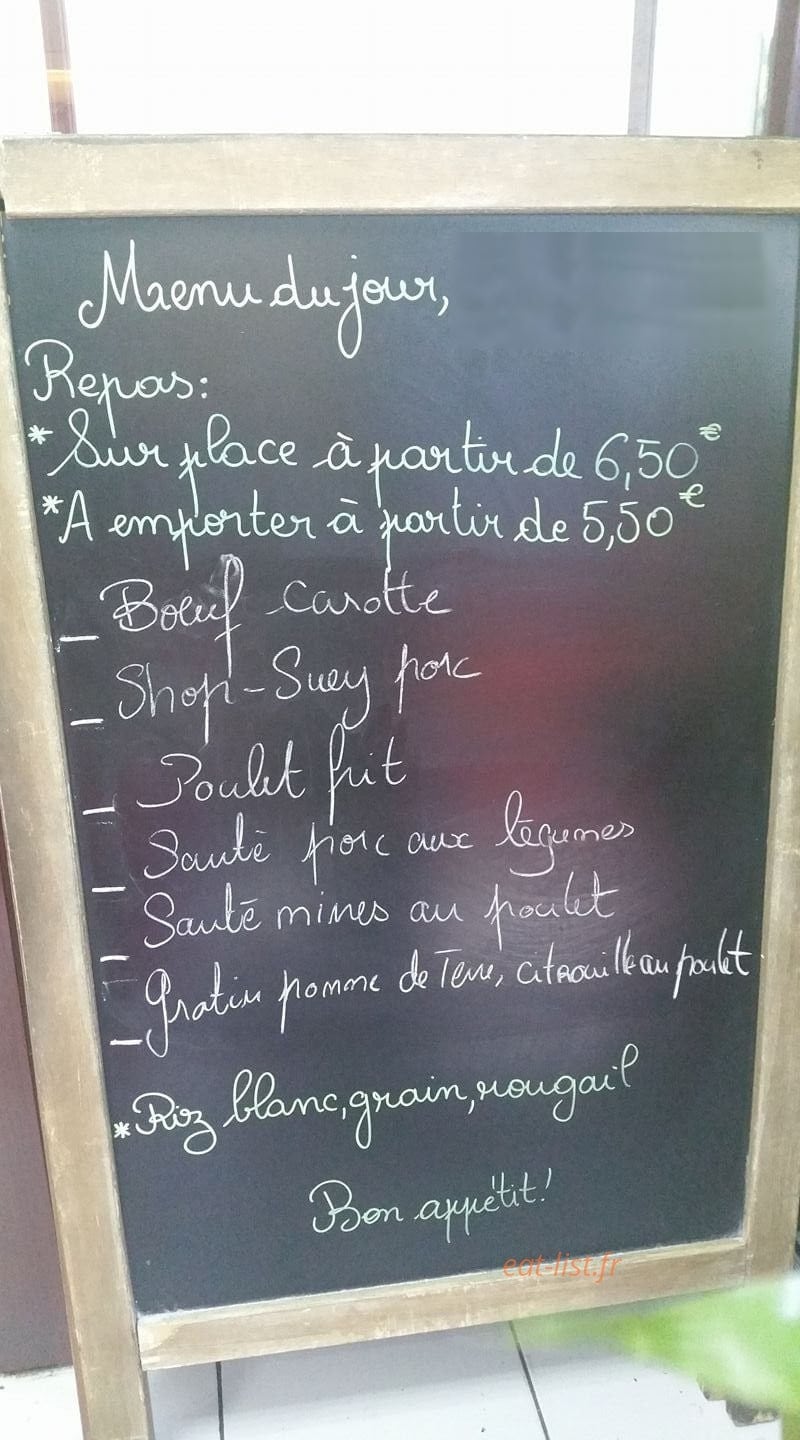 Menu du jour,
Repas:
* Sur place à partir de 6,50€
* A emporter à partir de 5,50€
_ Boeuf carotte
_ Shop-Suey porc
_ Poulet frit
_ Sauté porc aux légumes
_ Sauté mines au poulet
_ Gratin pomme de Terre, citrouille au poulet
* Riz blanc, grain, rougail
Bon appétit!
eat-list.fr